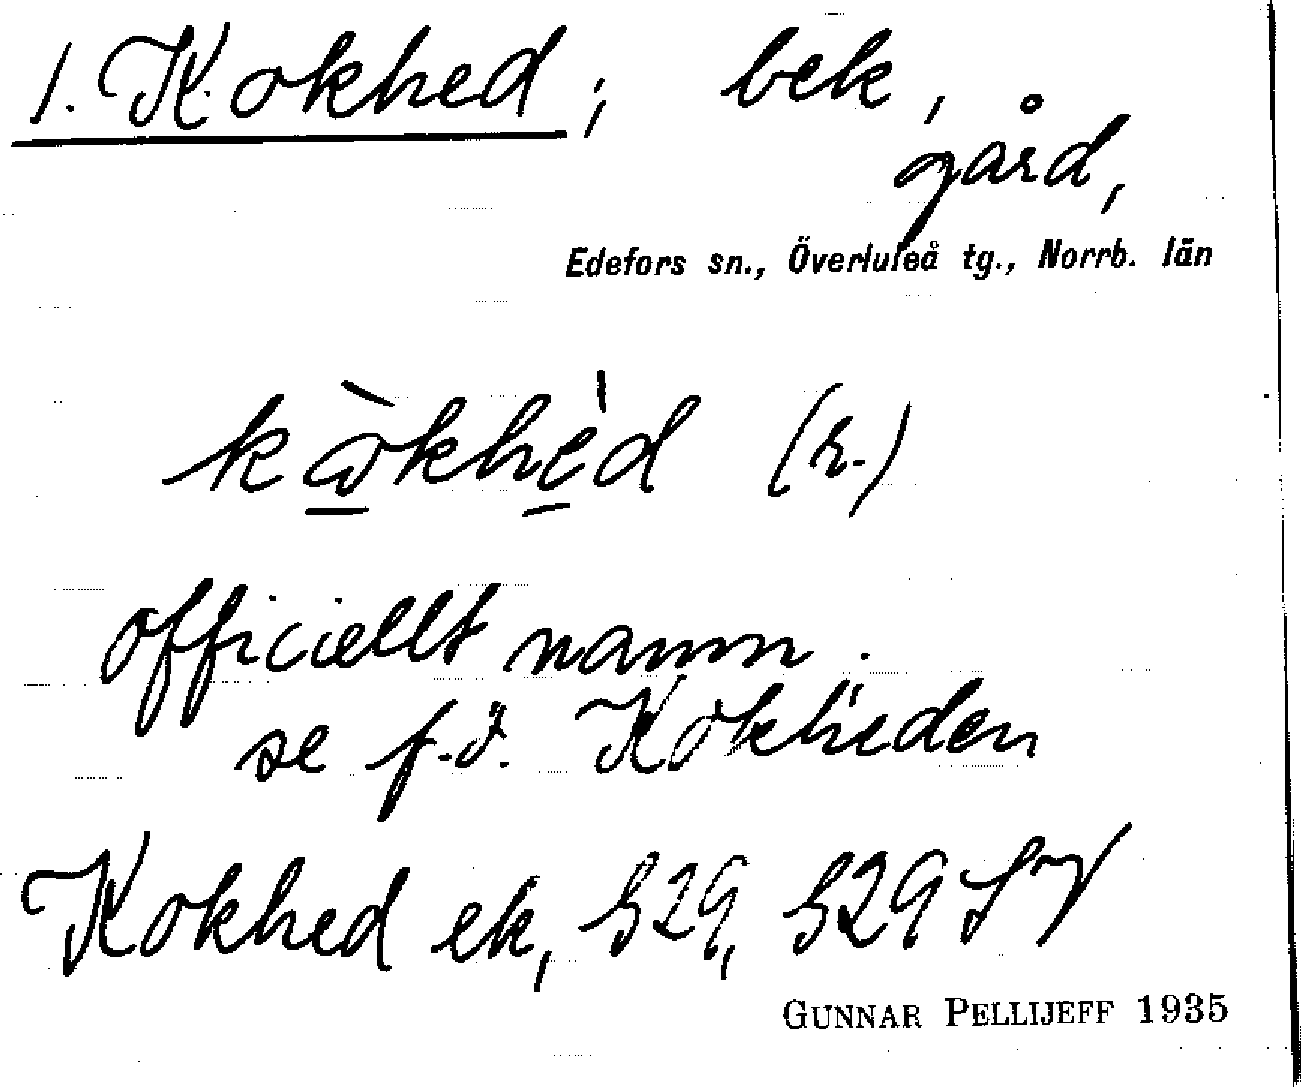 1. Kokhed; bek,
gård,
Edefors sn., Överluleå tg., Norrb. län
kòkhèd (r.)
officiellt namn.
se f.ö. Kokheden
Kokhed ek, h29, h29 SV
GUNNAR PELLIJEFF 1935